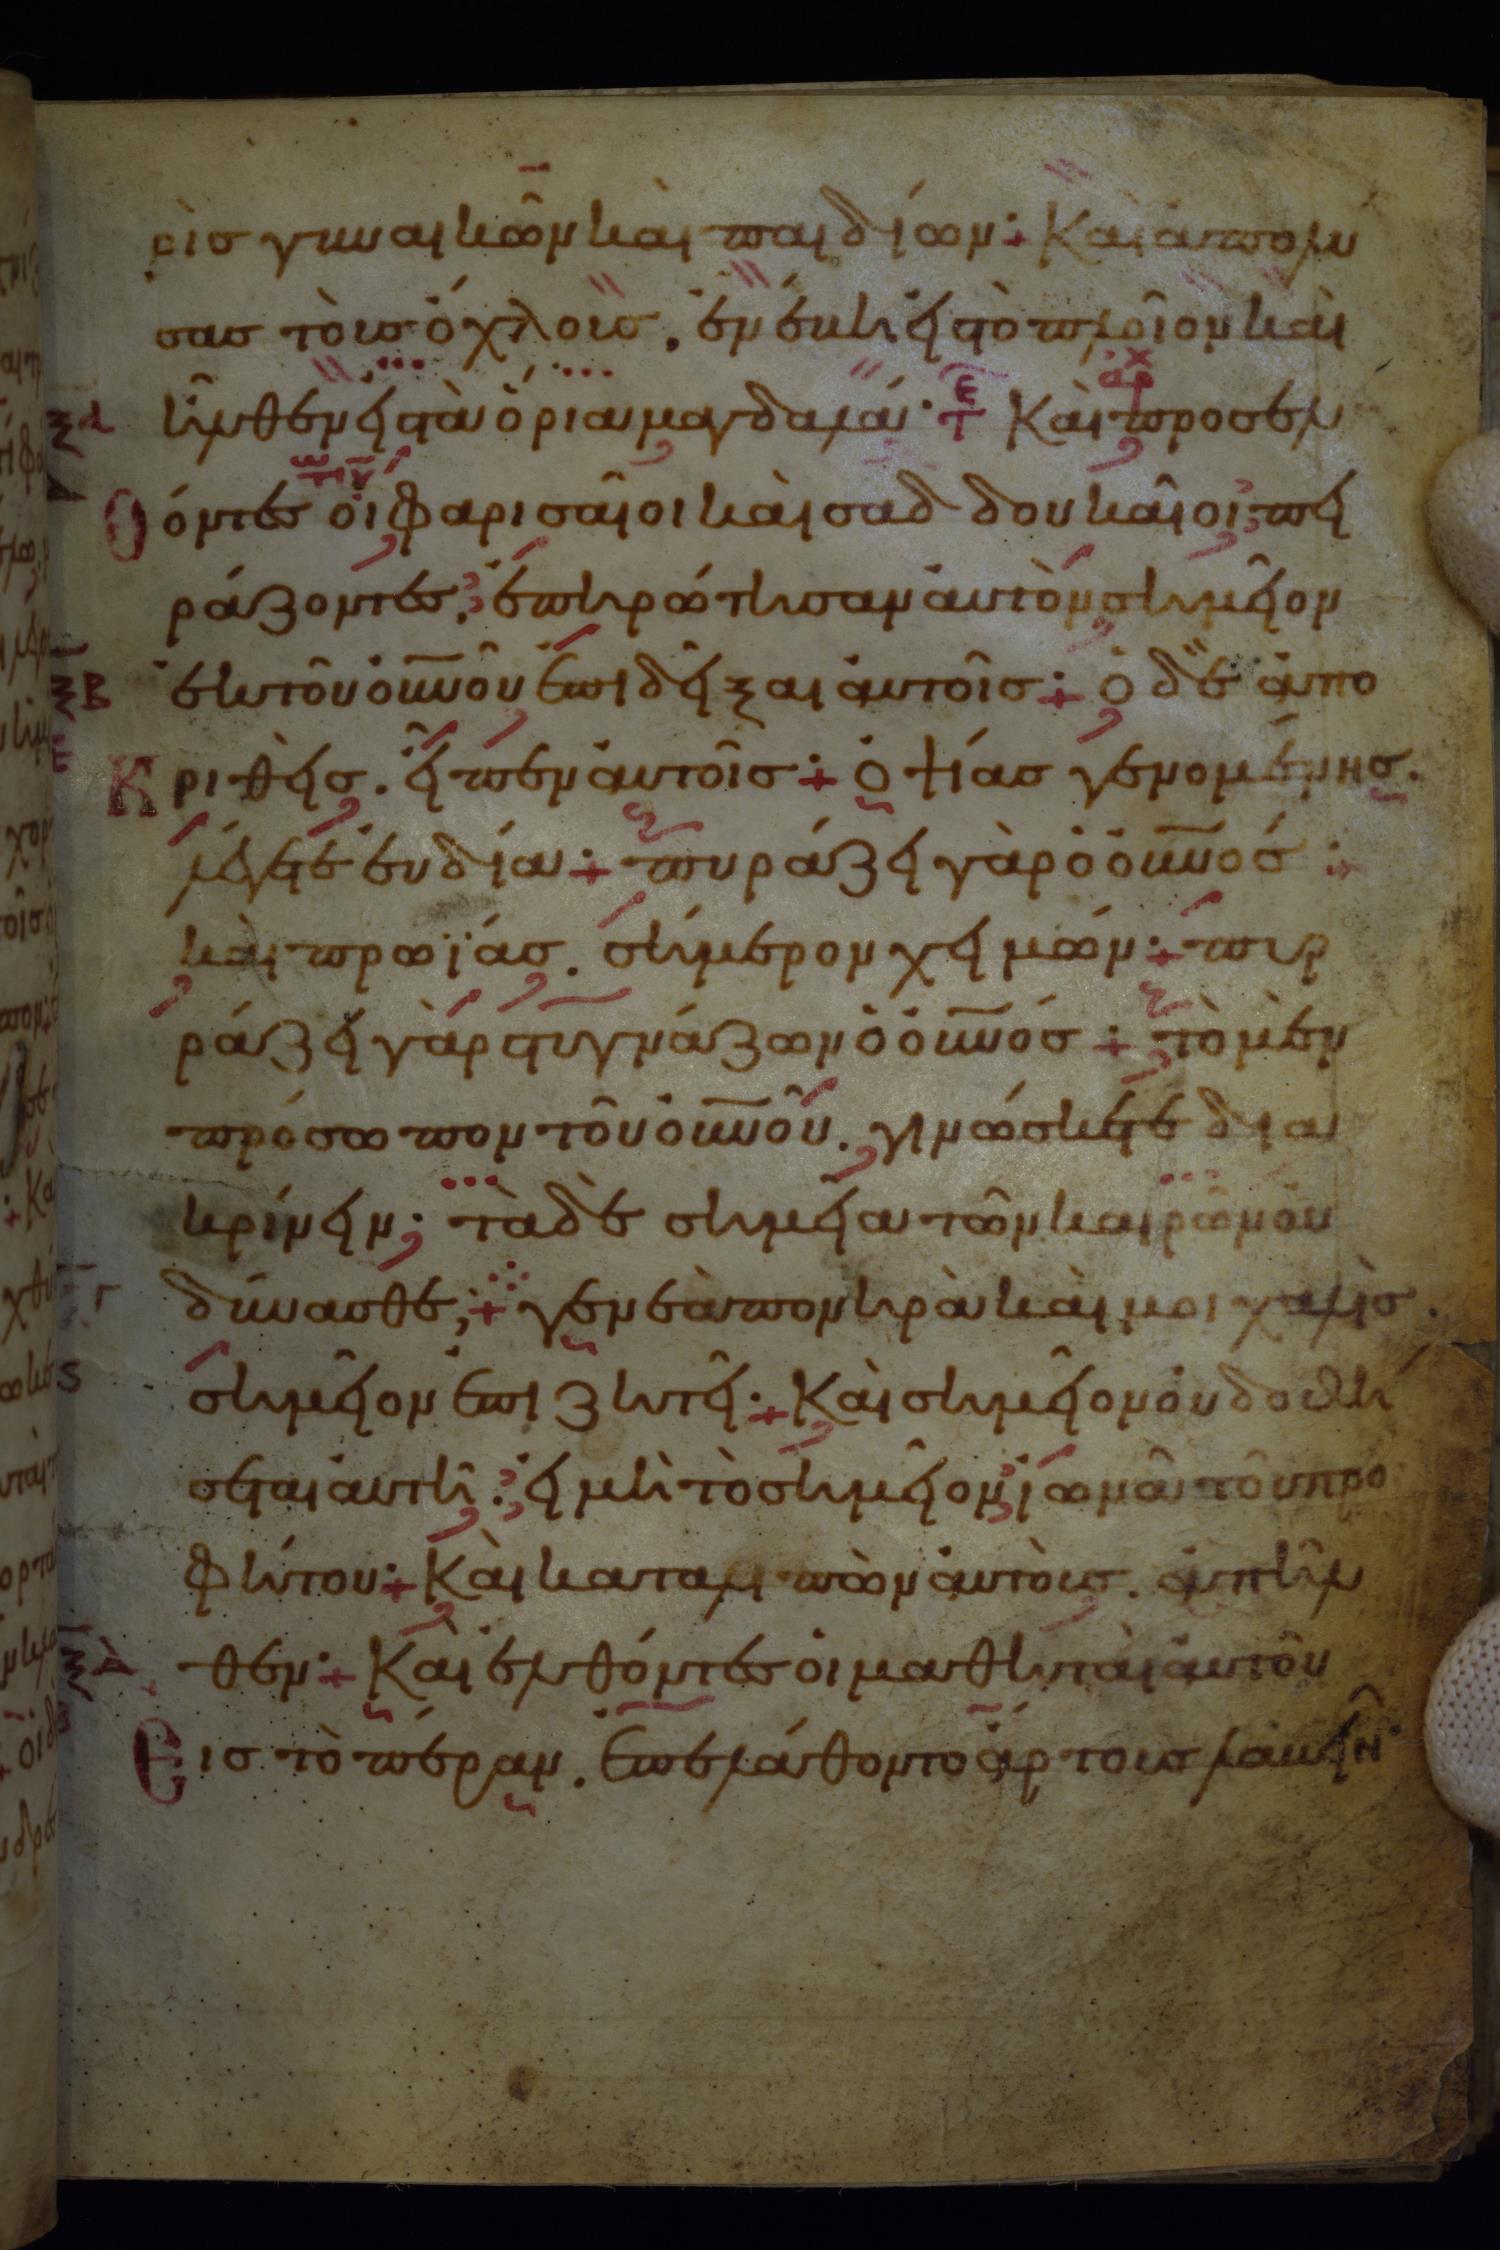 ρὶσ γυναικῶν καὶ παιδίων· Καὶ ἀπολυ
σασ τοὺσ ὄχλουσ. ἐνέβη εἰσ τὸ πλοῖον καὶ
ἦλθεν εἰσ τὰ ὅρια μαγδαλά· Καὶ προσελ
θόντεσ οἱ φαρισαῖοι καὶ σαδδουκαῖοι, πει
ράζοντεσ, ἐπηρώτησαν ἀυτὸν σημεῖον
ἐκ τοῦ οὐνοῦ ἐπιδεῖξαι ἀυτοῖσ· ὁ δὲ ἀπο
Κριθεὶσ. εἶπεν ἀυτοῖσ· ὀψίασ γενομένησ.
λέγετε ἐυδία· πυράζει γὰρ ὁ οὐνοσ·
καὶ πρωΐασ. σήμερον χειμών· πυρ
ράζει γὰρ στυγνάζων ὁ οὐνόσ· τὸ μὲν
πρόσωπον τοῦ οὐνοῦ. γινώσκετε δια
κρίνειν· τὰ δὲ σημεῖα τῶν καιρῶν οὐ
δύνασθε; γενεὰ πονηρὰ καὶ μοιχαλὶσ.
σημεῖον ἐπιζητεῖ· Καὶ σημεῖον ὀυ δοθή
σεται ἀυτῆ. εἰ μὴ τὸ σημεῖον ἰωνᾶ τοῦ προ
φήτου· Καὶ καταλιπὼν ἀυτοὺσ. ἀπῆλ
θεν· Καὶ ἐλθόντεσ οἱ μαθηταὶ ἀυτοῦ
Εισ τὸ πέραν. ἐπελάθοντο ἄρτουσ λαβεῖν